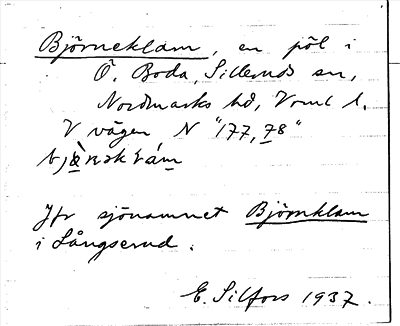 Björneklam, en pöl i
Ö. Boda, Silleruds sn,
Nordmarks hd, Vrml l.
V vägen N "177,78"
Jfr sjönamnet Björnklam
i Långserud.
E. Silfors 1937.